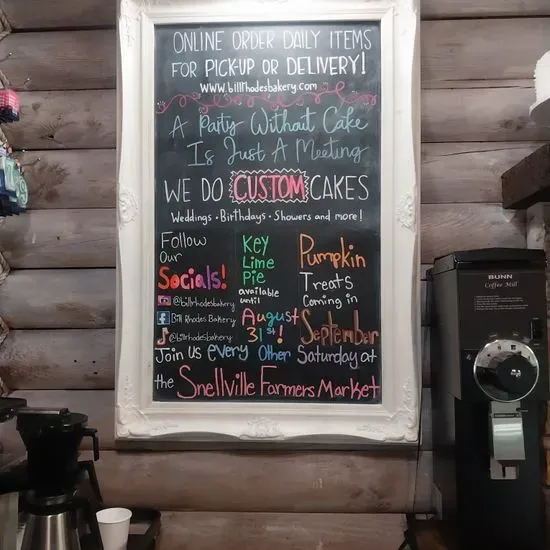 ONLINE ORDER DAILY ITEMS
FOR PICK-UP OR DELIVERY!
www.billrhodesbakery.com
A Party Without Cake
Is Just A Meeting
WE DO CUSTOM CAKES
Weddings • Birthdays • Showers and more!
Follow
Our
Socials!
@billrhodesbakery
Bill Rhodes Bakery
@billrhodesbakery
Key
Lime
Pie
available
until
August
31st!
Pumpkin
Treats
Coming in
September
Join Us every Other Saturday at
the Snellville Farmers Market
BUNN
Coffee Mill